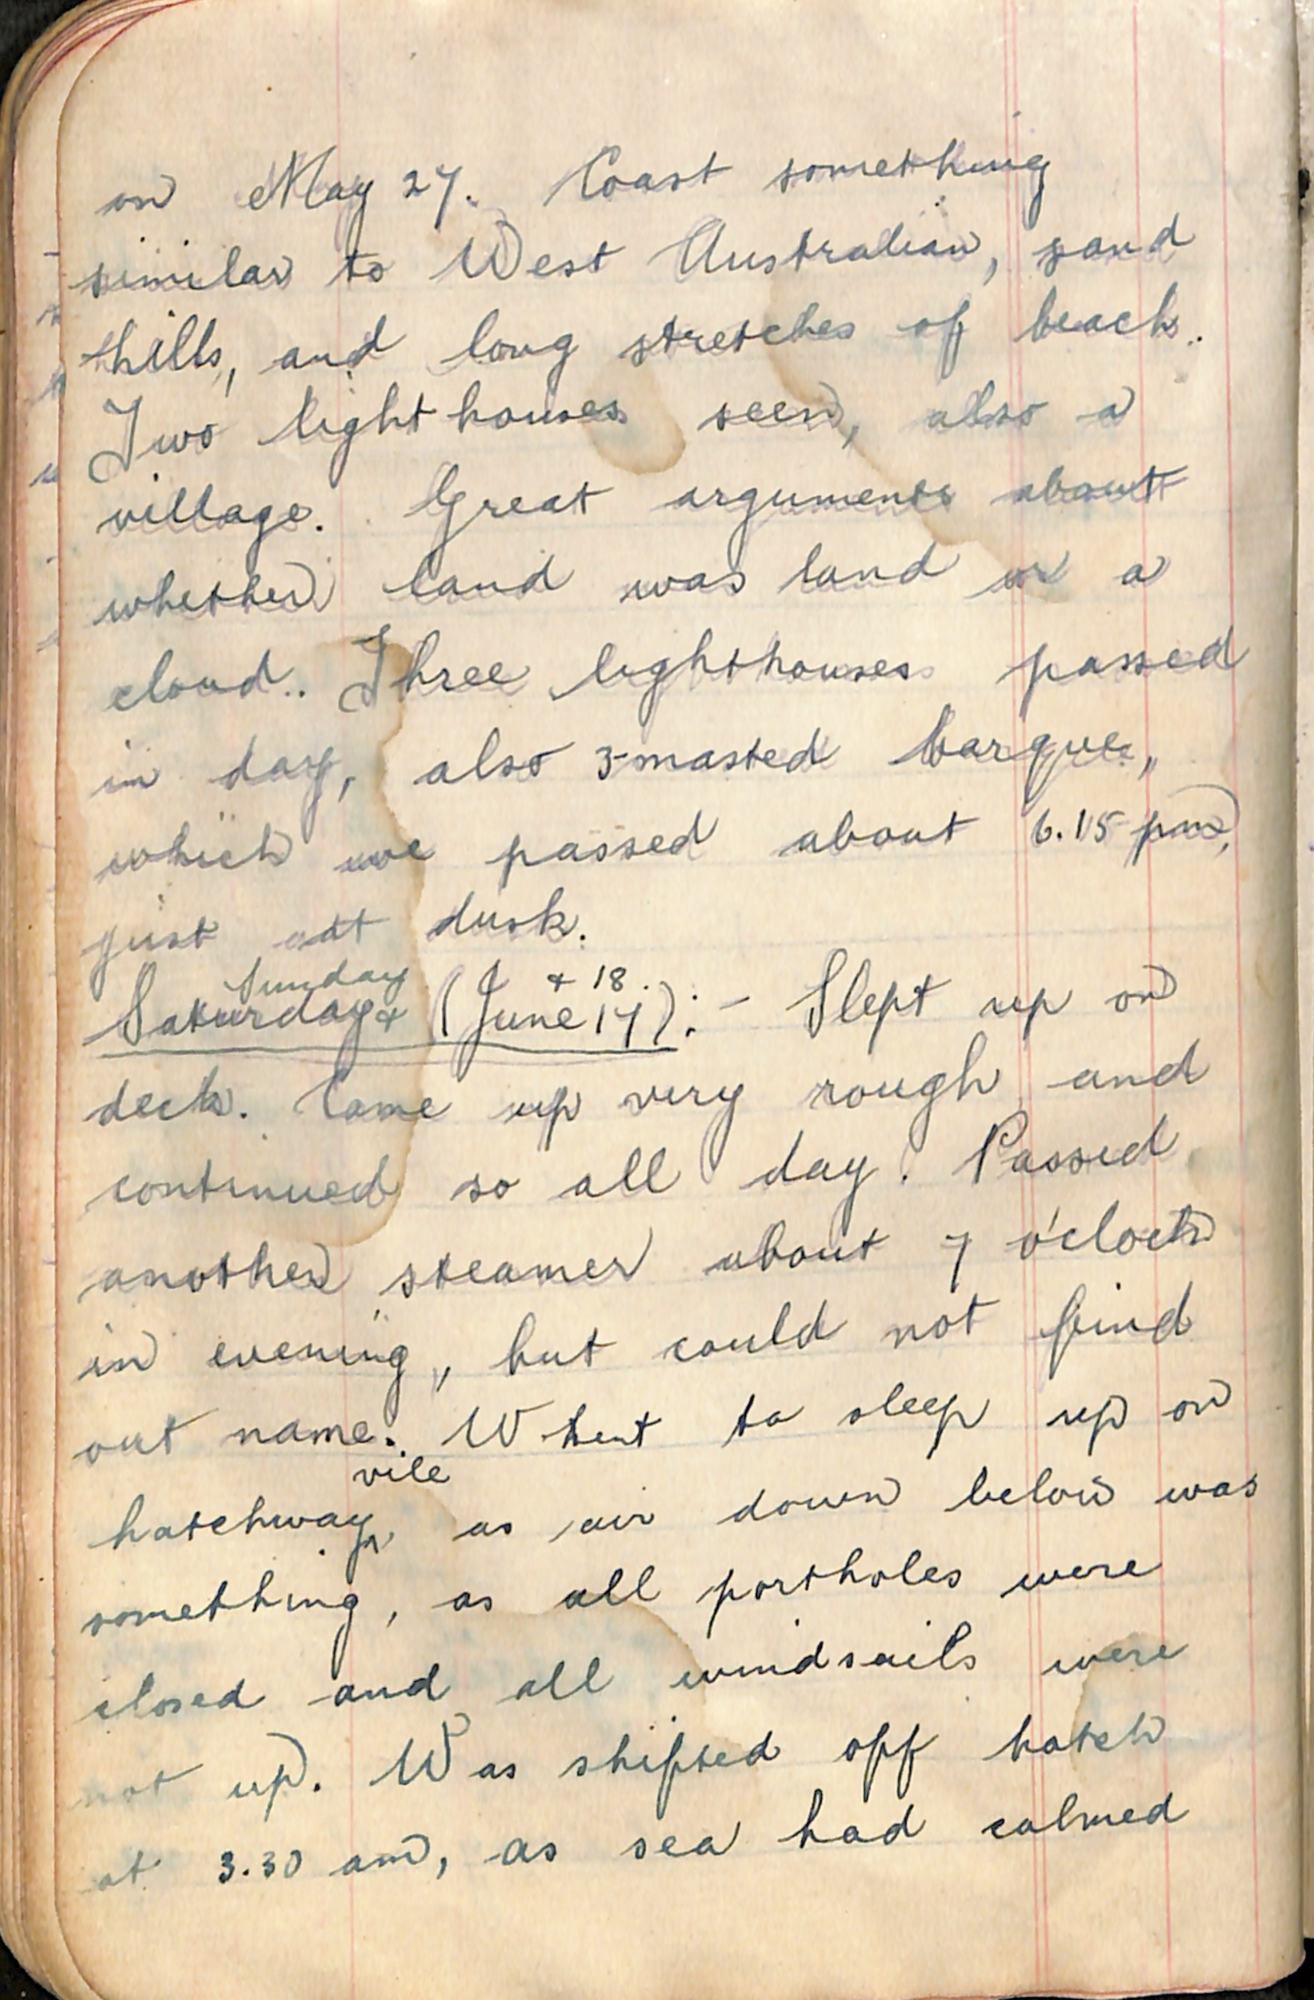 on May 27. Coast something
similar to West Australian, sand
hills, and long stretches of beach.
Two light houses seen, also a
village. Great arguments about
whether land was land or a
cloud.. Three lighthouses passed
in day, also 3-masted barque,
which we passed about 6.15 pm,
just at dusk.
Sunday + 18.
Saturday + (June 17):- Slept up on
deck. Came up very rough and
continued so all day. Passed
another steamer about 7 o'clock
in evening, but could not find
out name. Went to sleep up on
vile
hatchway, as air down below was
something, as all portholes were
closed and all windsails were
not up. Was shifted off hatch
at 3.30 am, as sea had calmed